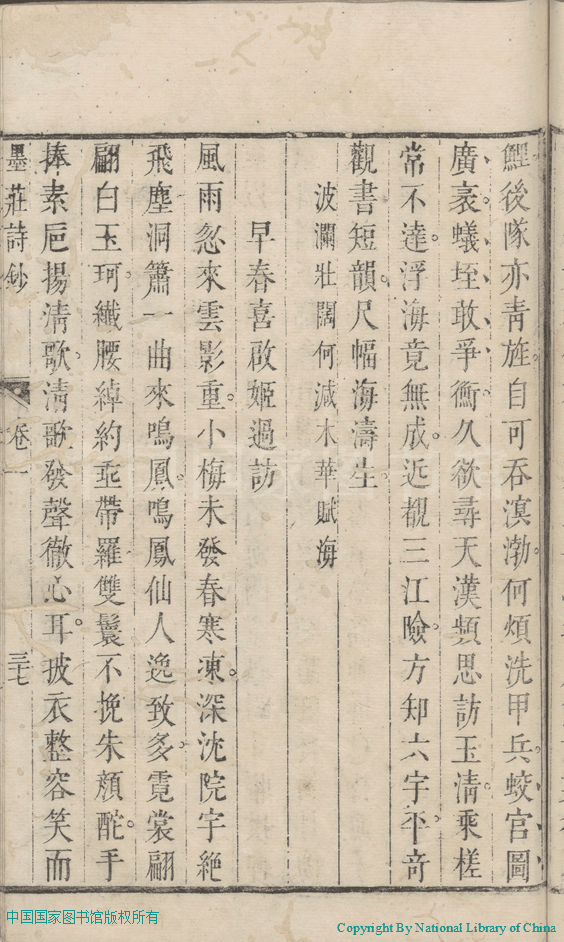 鯤後隊亦青旌自可吞溟渤何煩洗甲兵蛟宮圖
廣袤蟻垤敢爭衡久欲尋天漢頻思訪玉清乘槎
常不達浮海竟無成近覩三江險方知六宇平奇
觀書短韻尺幅海濤生
波瀾壯闊何減木華賦海
早春喜啟姬過訪
風雨忽來雲影重小梅未發春寒凍深沈院宇絕
飛塵洞簫一曲來鳴鳳鳴鳳仙人逸致多霓裳翩
翩白玉珂纖腰綽約垂帶羅雙鬟不挽朱顏酡手
捧素卮揚清歌清歌發聲徹心耳披衣整容笑而
墨莊詩鈔 卷一 三七
中国国家图书馆版权所有
Copyright By National Library of China